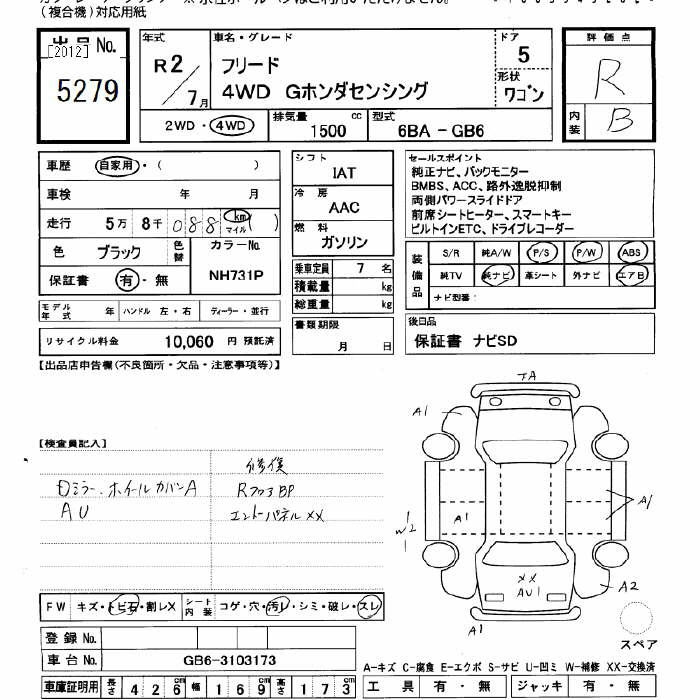 (複合機)対応用紙
出品 No.
[2012]
5279
年式
R2/7月
車名・グレード
フリード
4WD Gホンダセンシング
ドア
5
形状
ワゴン
評価点
R
内装
B
2WD・4WD
排気量
1500 cc
型式
6BA - GB6
車歴 自家用・( )
車検 年 月
走行 5万 8千 088 km マイル ( )
色 ブラック
色替
カラーNo.
NH731P
保証書 有・無
モデル年式 年
ハンドル 左・右
ディーラー・並行
リサイクル料金 10,060 円 預託済
シフト
IAT
冷房
AAC
燃料
ガソリン
乗車定員 7 名
積載量 kg
総重量 kg
書類期限
月 日
セールスポイント
純正ナビ、バックモニター
BMBS、ACC、路外逸脱抑制
両側パワースライドドア
前席シートヒーター、スマートキー
ビルトインETC、ドライブレコーダー
装備品
S/R 純A/W P/S P/W ABS
純TV 純ナビ 革シート 外ナビ エアB
ナビ型番:
後日品
保証書 ナビSD
【出品店申告欄(不良箇所・欠品・注意事項等)】
【検査員記入】
修復
ホイールカバーA
AU
エンドパネルXX
FW キズ・トビ石・割レX
シート内装 コゲ・穴・汚レ・シミ・破レ・スレ
登録 No.
車台 No. GB6-3103173
車庫証明用 長さ 426 cm 幅 169 cm 高さ 173 cm
TA
A1
A1
A1
W2
A2
XX
AU1
A1
スペア
A-キズ C-腐食 E-エクボ S-サビ U-凹ミ W-補修 XX-交換済
工具 有・無 ジャッキ 有・無